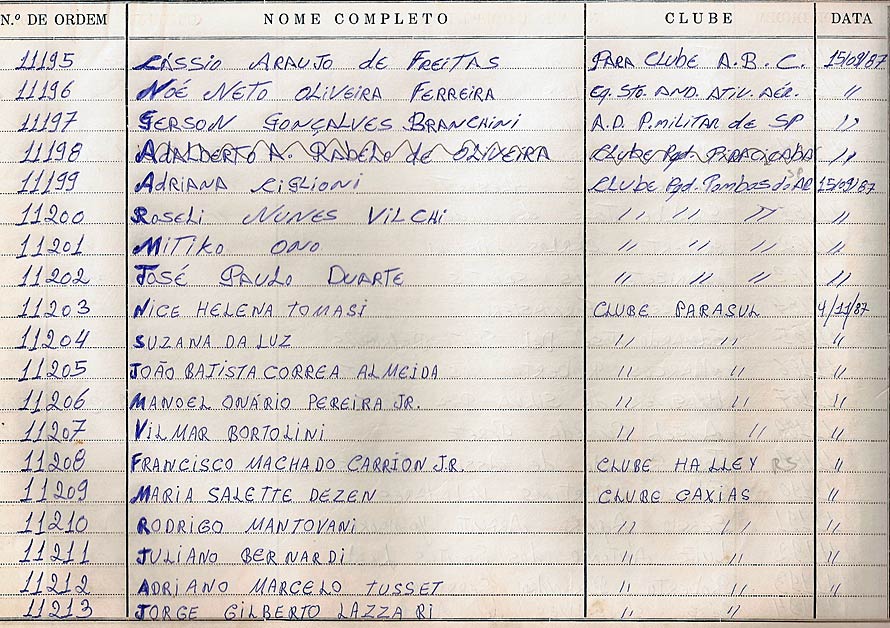 N.º DE ORDEM NOME COMPLETO CLUBE DATA
11195 CÁSSIO ARAUJO de FREITAS PARA CLUBE A.B.C. 15/09/87
11196 NOÉ NETO OLIVEIRA FERREIRA Eq. Sto. AND. ATIV. AÉR. "
11197 GERSON GONÇALVES BRANCHINI A.D. P.MILITAR de SP "
11198 ADALBERTO A. RABELO de OLIVEIRA CLUBE Pqd. PIRACICABA "
11199 ADRIANA CIGLIONI CLUBE Pqd. Pombas do AR SP 15/09/87
11200 ROSELI NUNES VILCHI " " " "
11201 MITIKO ONO " " " "
11202 JOSÉ PAULO DUARTE " " " "
11203 NICE HELENA TOMASI CLUBE PARASUL 4/11/87
11204 SUZANA DA LUZ " " "
11205 JOÃO BATISTA CORREA ALMEIDA " " "
11206 MANOEL ONÁRIO PEREIRA JR. " " "
11207 VILMAR BORTOLINI " " "
11208 FRANCISCO MACHADO CARRION J.R. CLUBE HALLEY RS "
11209 MARIA SALETTE DEZEN CLUBE CAXIAS "
11210 RODRIGO MANTOVANI " " "
11211 JULIANO BERNARDI " " "
11212 ADRIANO MARCELO TUSSET " " "
11213 JORGE GILBERTO LAZZARI " "